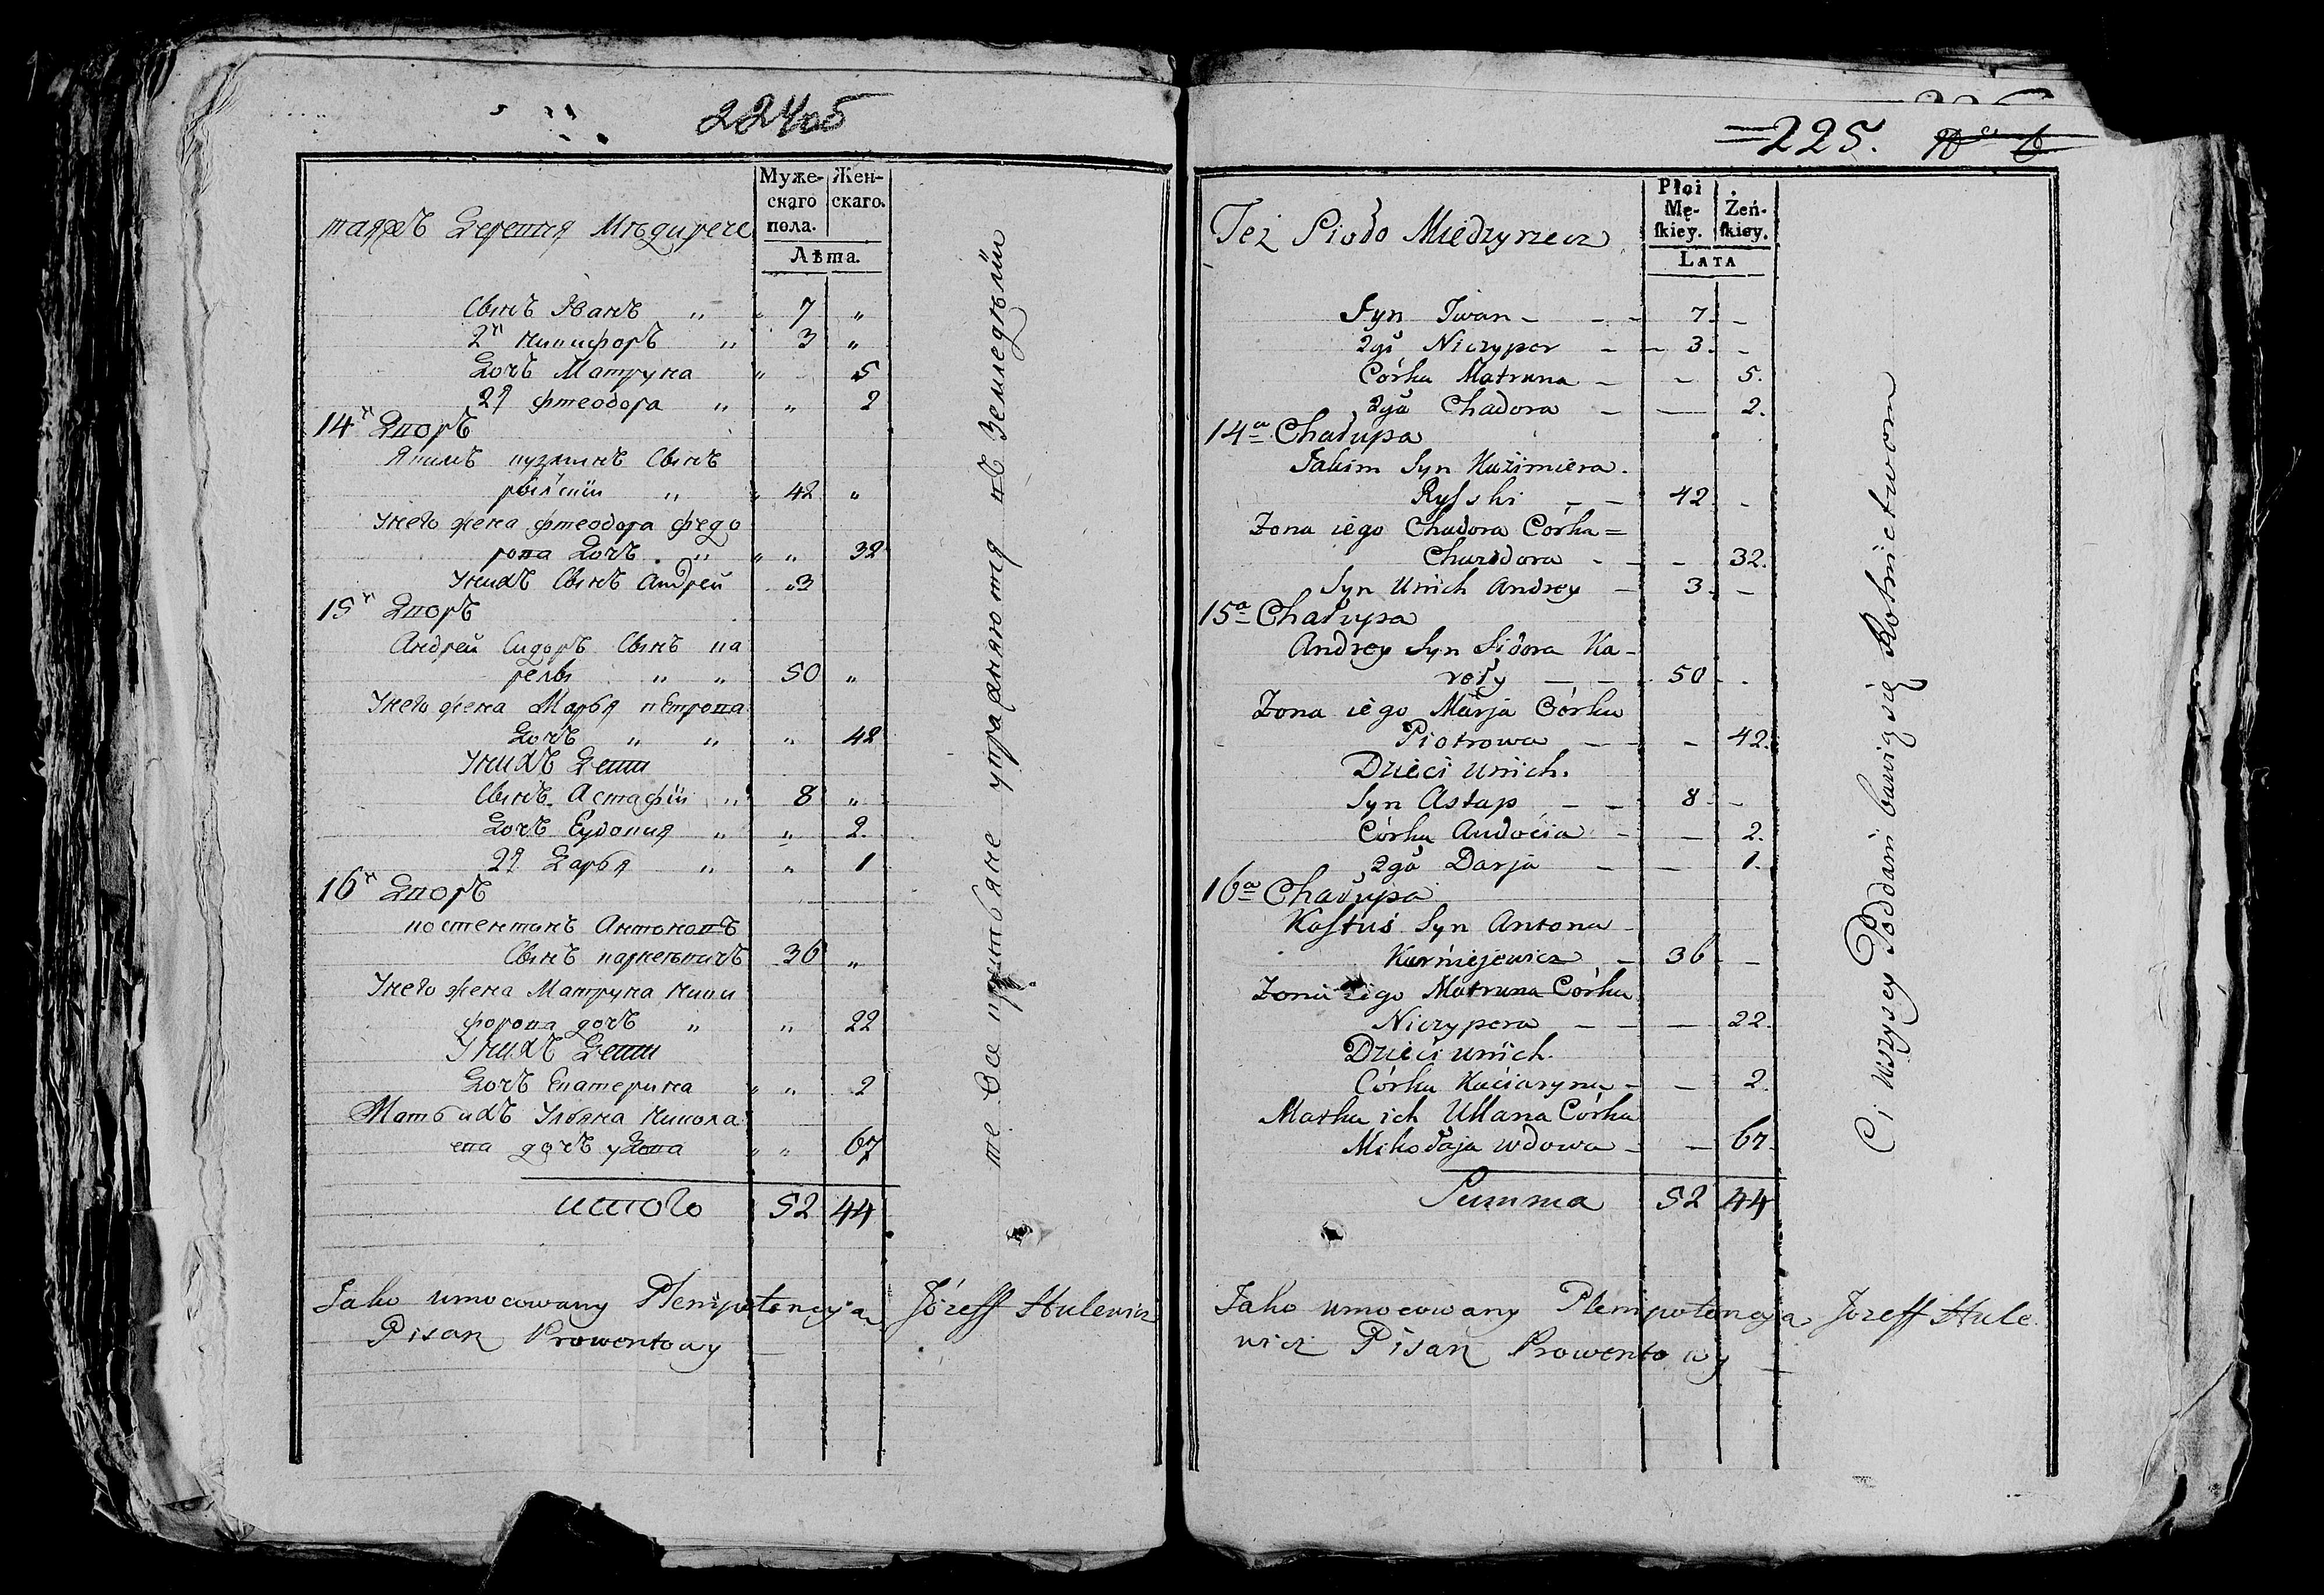 224 об
Муже-
скаго
пола.
Жен-
скаго.
Лѣта.
таяжъ Деревня Мѣдирече
Сынъ Иванъ „ „ 7 „
2й Никифоръ „ 3 „
Дочь Матруна „ 5
2я Фтеодора „ „ 2
14й Дворъ
Якимъ Сынъ
рыскiи „ „ 42 „
Унего жена фтеодора федо
рова Дочь „ „ „ 32
Унихъ Сынъ Андрей „ 3
15й Дворъ
Андрей Сидоръ Сынъ ка
релы „ „ 50 „
Унего жена Марья петрова
Дочь „ „ „ 42
Унихъ Дети
Сынъ Астафiи „ 8 „
Дочь Евдокия „ „ 2.
2я Дарья „ „ 1
16й Дворъ
костентинъ Антоновъ
Сынъ 36 „
Унего жена Матруна Ники
форова дочь „ „ 22
Унихъ Дети
Дочь Екатерина „ „ 2
Мать ихъ Ульяна Никола
ева дочь удова „ „ 67
итого 52 44
те Все крестьяне упражняютца въ Земледелiи
Jako umocowany Plenipotencyją Józeff Hulewicz
Pisarz Prowentowy
225.
Płci
Mę-
skiey.
Żeń-
skiey.
LATA
Też Sioło Miedzyrzecz
Syn Iwan - - - 7. -
2gi Niczypor - - 3. -
Córka Matruna - - 5.
2gą Chadora - - 2.
14a Chałupa
Jakim Syn Kazimiera.
Rysski - - 42. -
Zona iego Chadora Córka =
Chwiedora - - - 32.
Syn Unich Andrey - 3. -
15a Chałupa
Andrey Syn Sidora Ka-
roły - - 50 - .
Zona iego Marja Córka
Piotrowa - - - 42.
Dzieci unich.
Syn Astap - - 8 - -
Córka Audocia - - 2.
2gą Darja - - 1.
16a Chałupa
Kastuś Syn Antona -
Karniejewicz - 36 - -
Zona iego Matruna Córka
Niczypera - - - 22.
Dzieci unich.
Córka Kaciaryna - - 2
Matka ich Ullana Córka
Mikołaja wdowa - - 67.
Summa 52 44
Ci Wszyscy Poddani bawią się Rolnictwom
Jako umocowany Plenipotencyją Jozeff Hule
wicz Pisarz Prowentowy -